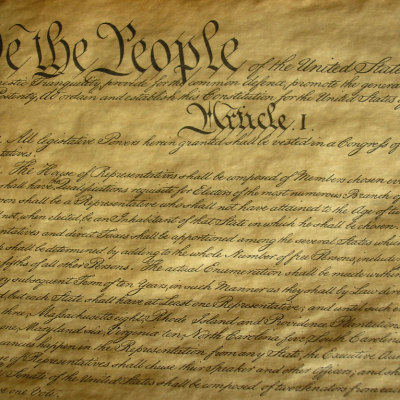 We the People of the United State
estic Tranquility, provide for the common defence, promote the genera
Posterity, do ordain and establish this Constitution for the United States
Article. I.
All legislative Powers herein granted shall be vested in a Congress of
tatives.
The House of Representatives shall be composed of Members chosen eve
shall have Qualifications requisite for Electors of the most numerous Branch of
son shall be a Representative who shall not have attained to the Age of tw
not, when elected, be an Inhabitant of that State in which he shall be chosen
entatives and direct Taxes shall be apportioned among the several States whic
shall be determined by adding to the whole Number of free Persons, includ
fifths of all other Persons. The actual Enumeration shall be made within
ry subsequent Term of ten Years, in such Manner as they shall by Law dir
but each State shall have at Least one Representative; and until such e
three, Massachusetts eight, Rhode Island and Providence Plantations
one, Maryland six, Virginia ten, North Carolina five, South Carolina
ancies happen in the Representation from any State, the Executive Au
use of Representatives shall chuse their Speaker and other Officers; and sha
Senate of the United States shall be composed of two Senators from each
ave one Vote.